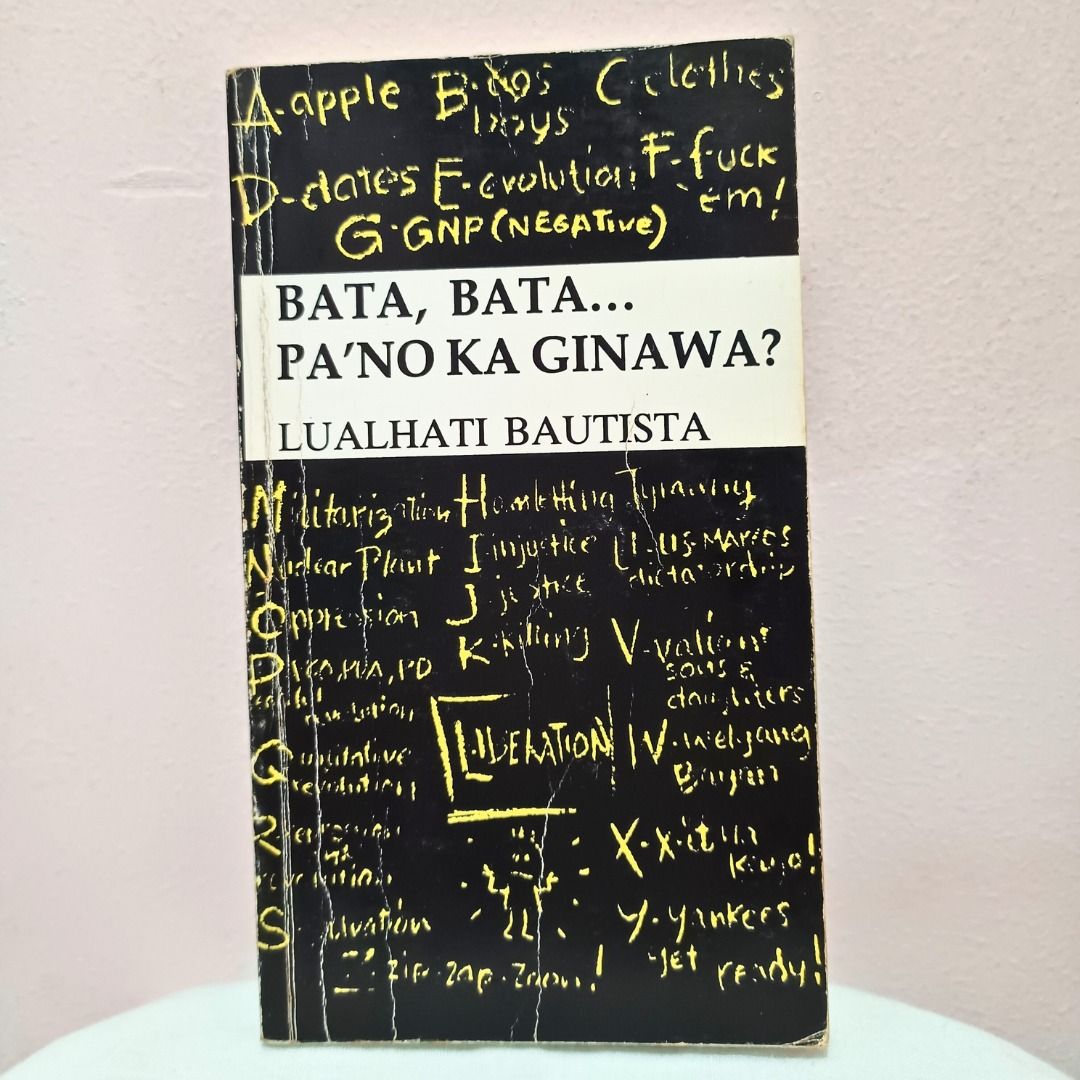 A-apple B- boys C-clothes
D-dates E-evolution F-fuck 'em!
G-GNP (NEGATIVE)
BATA, BATA...
PA'NO KA GINAWA?
LUALHATI BAUTISTA
Militarization Hamletting Tyranny
Nuclear Plant I injustice U-US-MARCOS
dictatorship
Oppression J-justice
K-killing V-valiant
sons &
daughters
PCO, PDA, PD
LIBERATION W-welgang
Bayan
Q
revolution
R
S
X-x-it na
kayo!
Y-yankees
get ready!
Z- zip-zap-zoom!